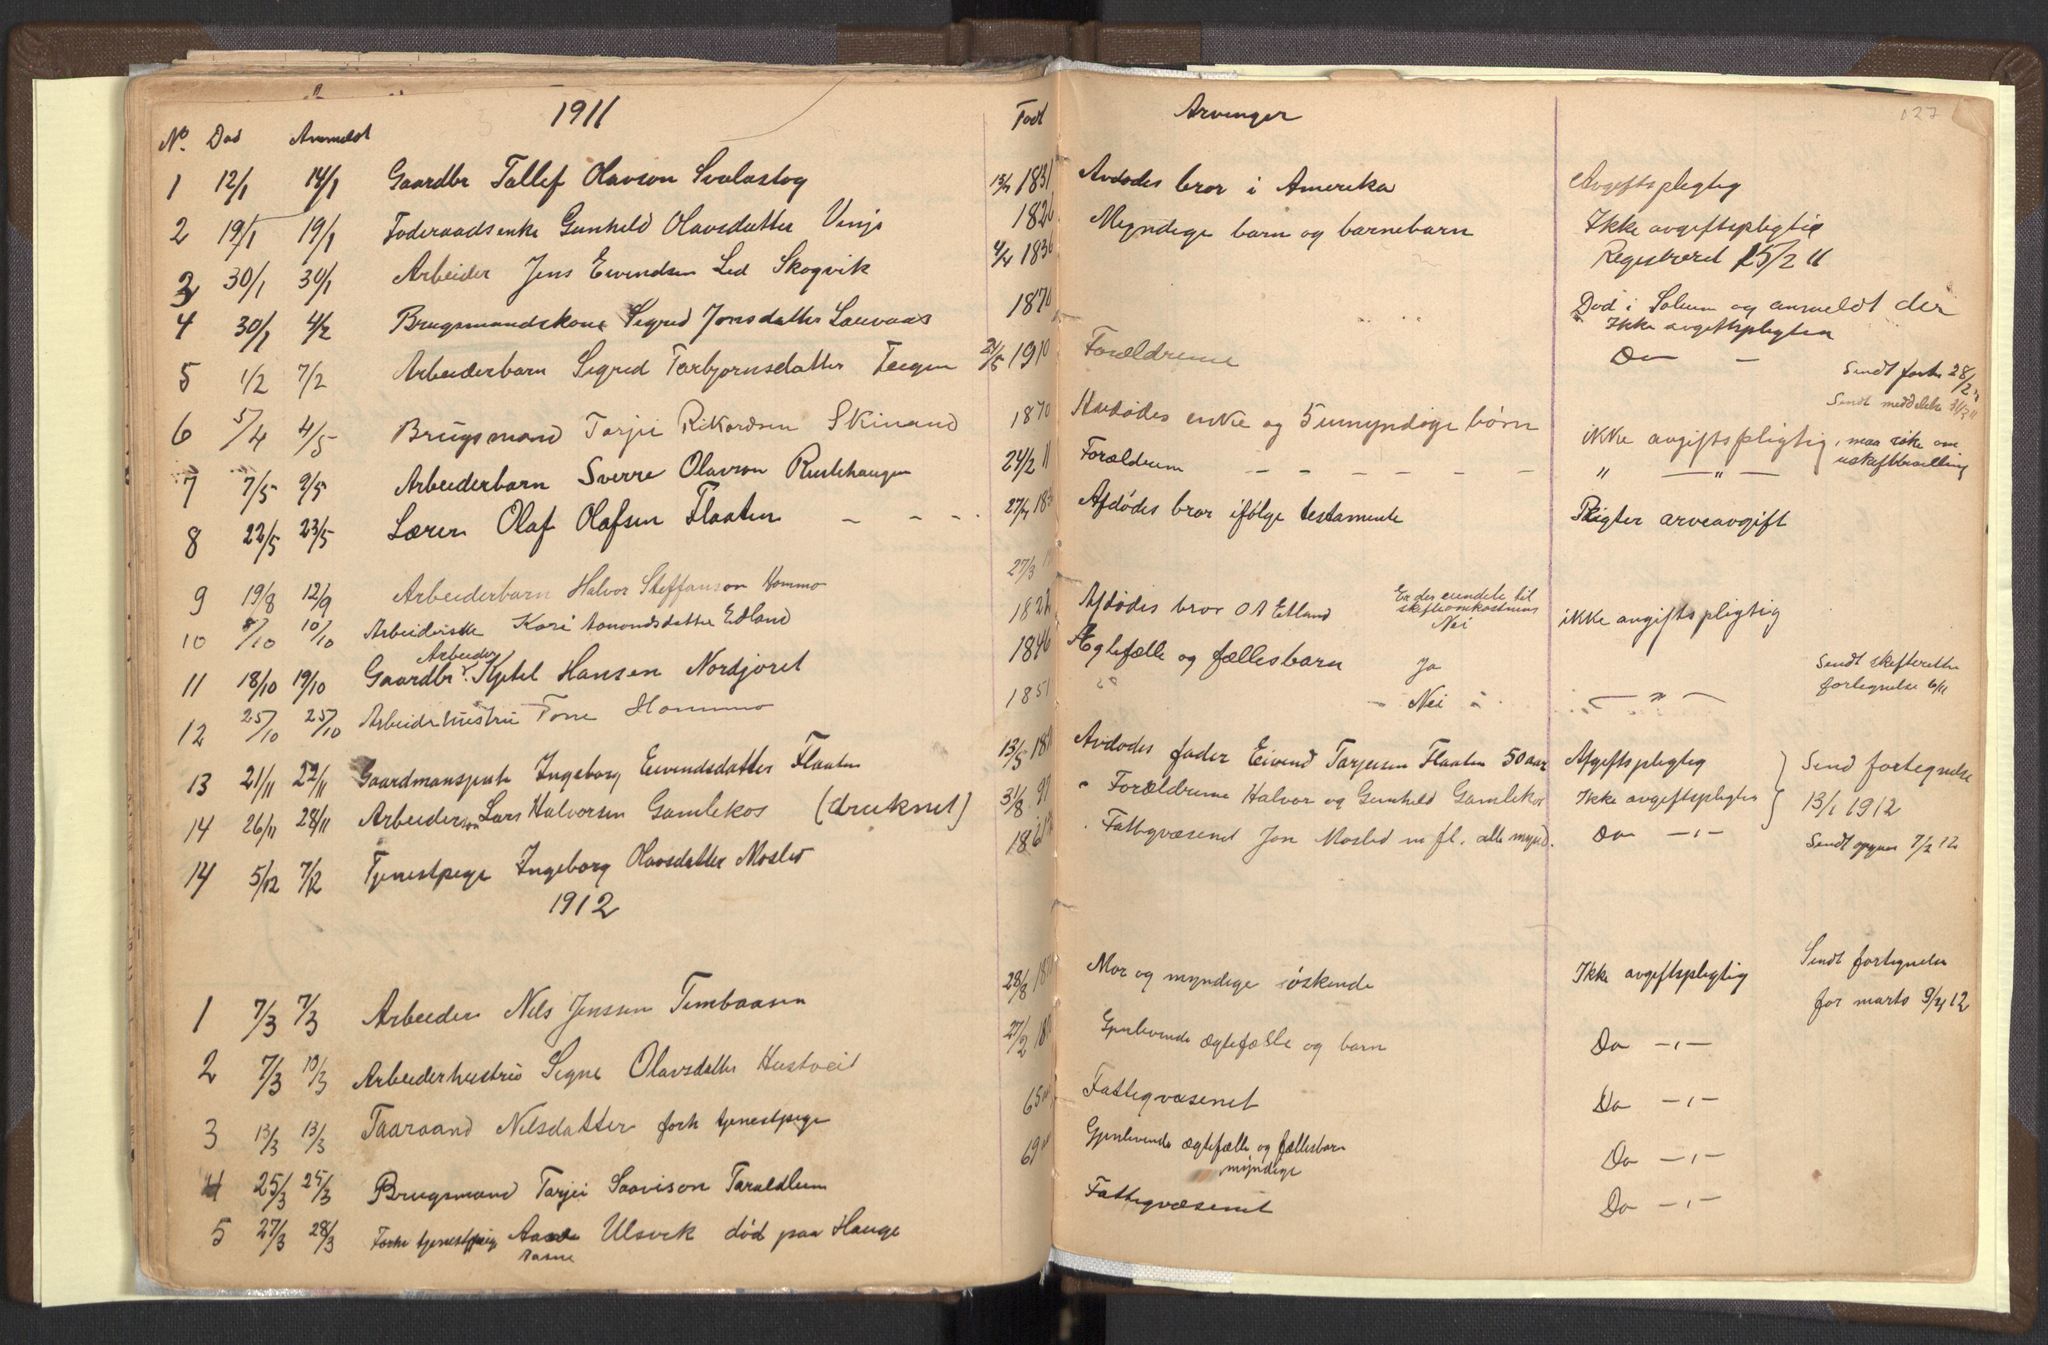 1911
No. Død Anmeldt Født Arvinger 127
1 12/1 14/1 Gaardbr Tallef Olavson Svalastog 1831 Avdødes bror i Amerika Avgiftspligtig
2 19/1 19/1 Føderaadsenke Gunhild Olavsdatter Vinje 1826 Myndige barn og barnebarn Ikke avgiftspligtig
3 30/1 30/1 Arbeider Jens Eivindsen Lid Skogvik 4/4 1836 Registreret 15/2 11
4 30/1 4/2 Brugsmandskone Sigrid Jonsdatter Lauvaas 1870 Død i Solum og anmeldt der
Ikke avgiftspligtig
5 1/2 7/2 Arbeiderbarn Sigrid Torbjørnsdatter Teigen 21/5 1910 Forældrene Do -
Sendt fortn 28/2
Sendt meddelelse 31/3 11
6 5/4 4/5 Brugsmand Tarjei Rikardsen Skinand 1870 Avdødes enke og 5 umyndige børn ikke avgiftspligtig, maa søke om
uskiftbevilling
7 7/5 9/5 Arbeiderbarn Sverre Olavson Rustehaugen 24/2 11 Forældrene - - - - - - " - " -
8 22/5 23/5 Lærer Olaf Olafsen Flaaten - - - 27/4 Afdødes bror ifølge testamente Pligter arveavgift
9 19/8 12/9 Arbeiderbarn Halvor Steffanson Hommo 27/3
10 8/10 10/10 Arbeiderske Kari Aamondsdatter Edland 1822 Afdødes bror O A Edland Er der eiendele til
skifteomkostninger
Nei ikke avgiftspligtig
Arbeider
11 18/10 19/10 Gaardbr Kjetel Hansen Nordjoret 1846 Ægtefælle og fællesbarn Ja Sendt skifteretten
fortegnelse 6/11
12 25/10 25/10 Arbeiderhustru Tone Hommo 1851 - Nei - - " -
13 21/11 22/11 Gaardmanspike Ingeborg Eivindsdatter Flaaten 13/5 Avdødes fader Eivind Tarjeisen Flaaten 50 aar Afgiftspligtig Send fortegnelse
14 26/11 28/11 Arbeidersøn Lars Halvorsen Gamlekos (druknet) 31/8 97 Forældrene Halvor og Gunhild Gamlekos Ikke avgiftspligtig 13/1 1912
14 5/12 7/12 Tjenestpige Ingeborg Olavsdatter Mosled Fattigvæsenet Jon Mosled m fl. alle mynd. Do -,- Sendt opgver 7/2 12
1912
1 7/3 7/3 Arbeider Nils Jenssen Timbaasen 28/8 Mor og myndige søskende Ikke avgiftspligtig Sendt fortegnelse
for marts 9/4 12
2 7/3 13/3 Arbeiderhustru Signe Olavsdatter Hustveit 27/2 Gjenlevende ægtefælle og barn Do -,-
3 13/3 13/3 Taaraand Nilsdatter forh tjenestpige 65 aar Fattigvæsenet Do -,-
4 25/3 25/3 Brugsmand Tarjei Saavison Taraldlien 69 aar Gjenlevende ægtefælle og fællesbarn
myndige Do -,-
5 27/3 28/3 Forhv tjenestpige Aasne Ulsvik død paa Hauge Fattigvæsenet Do -,-
Aasne